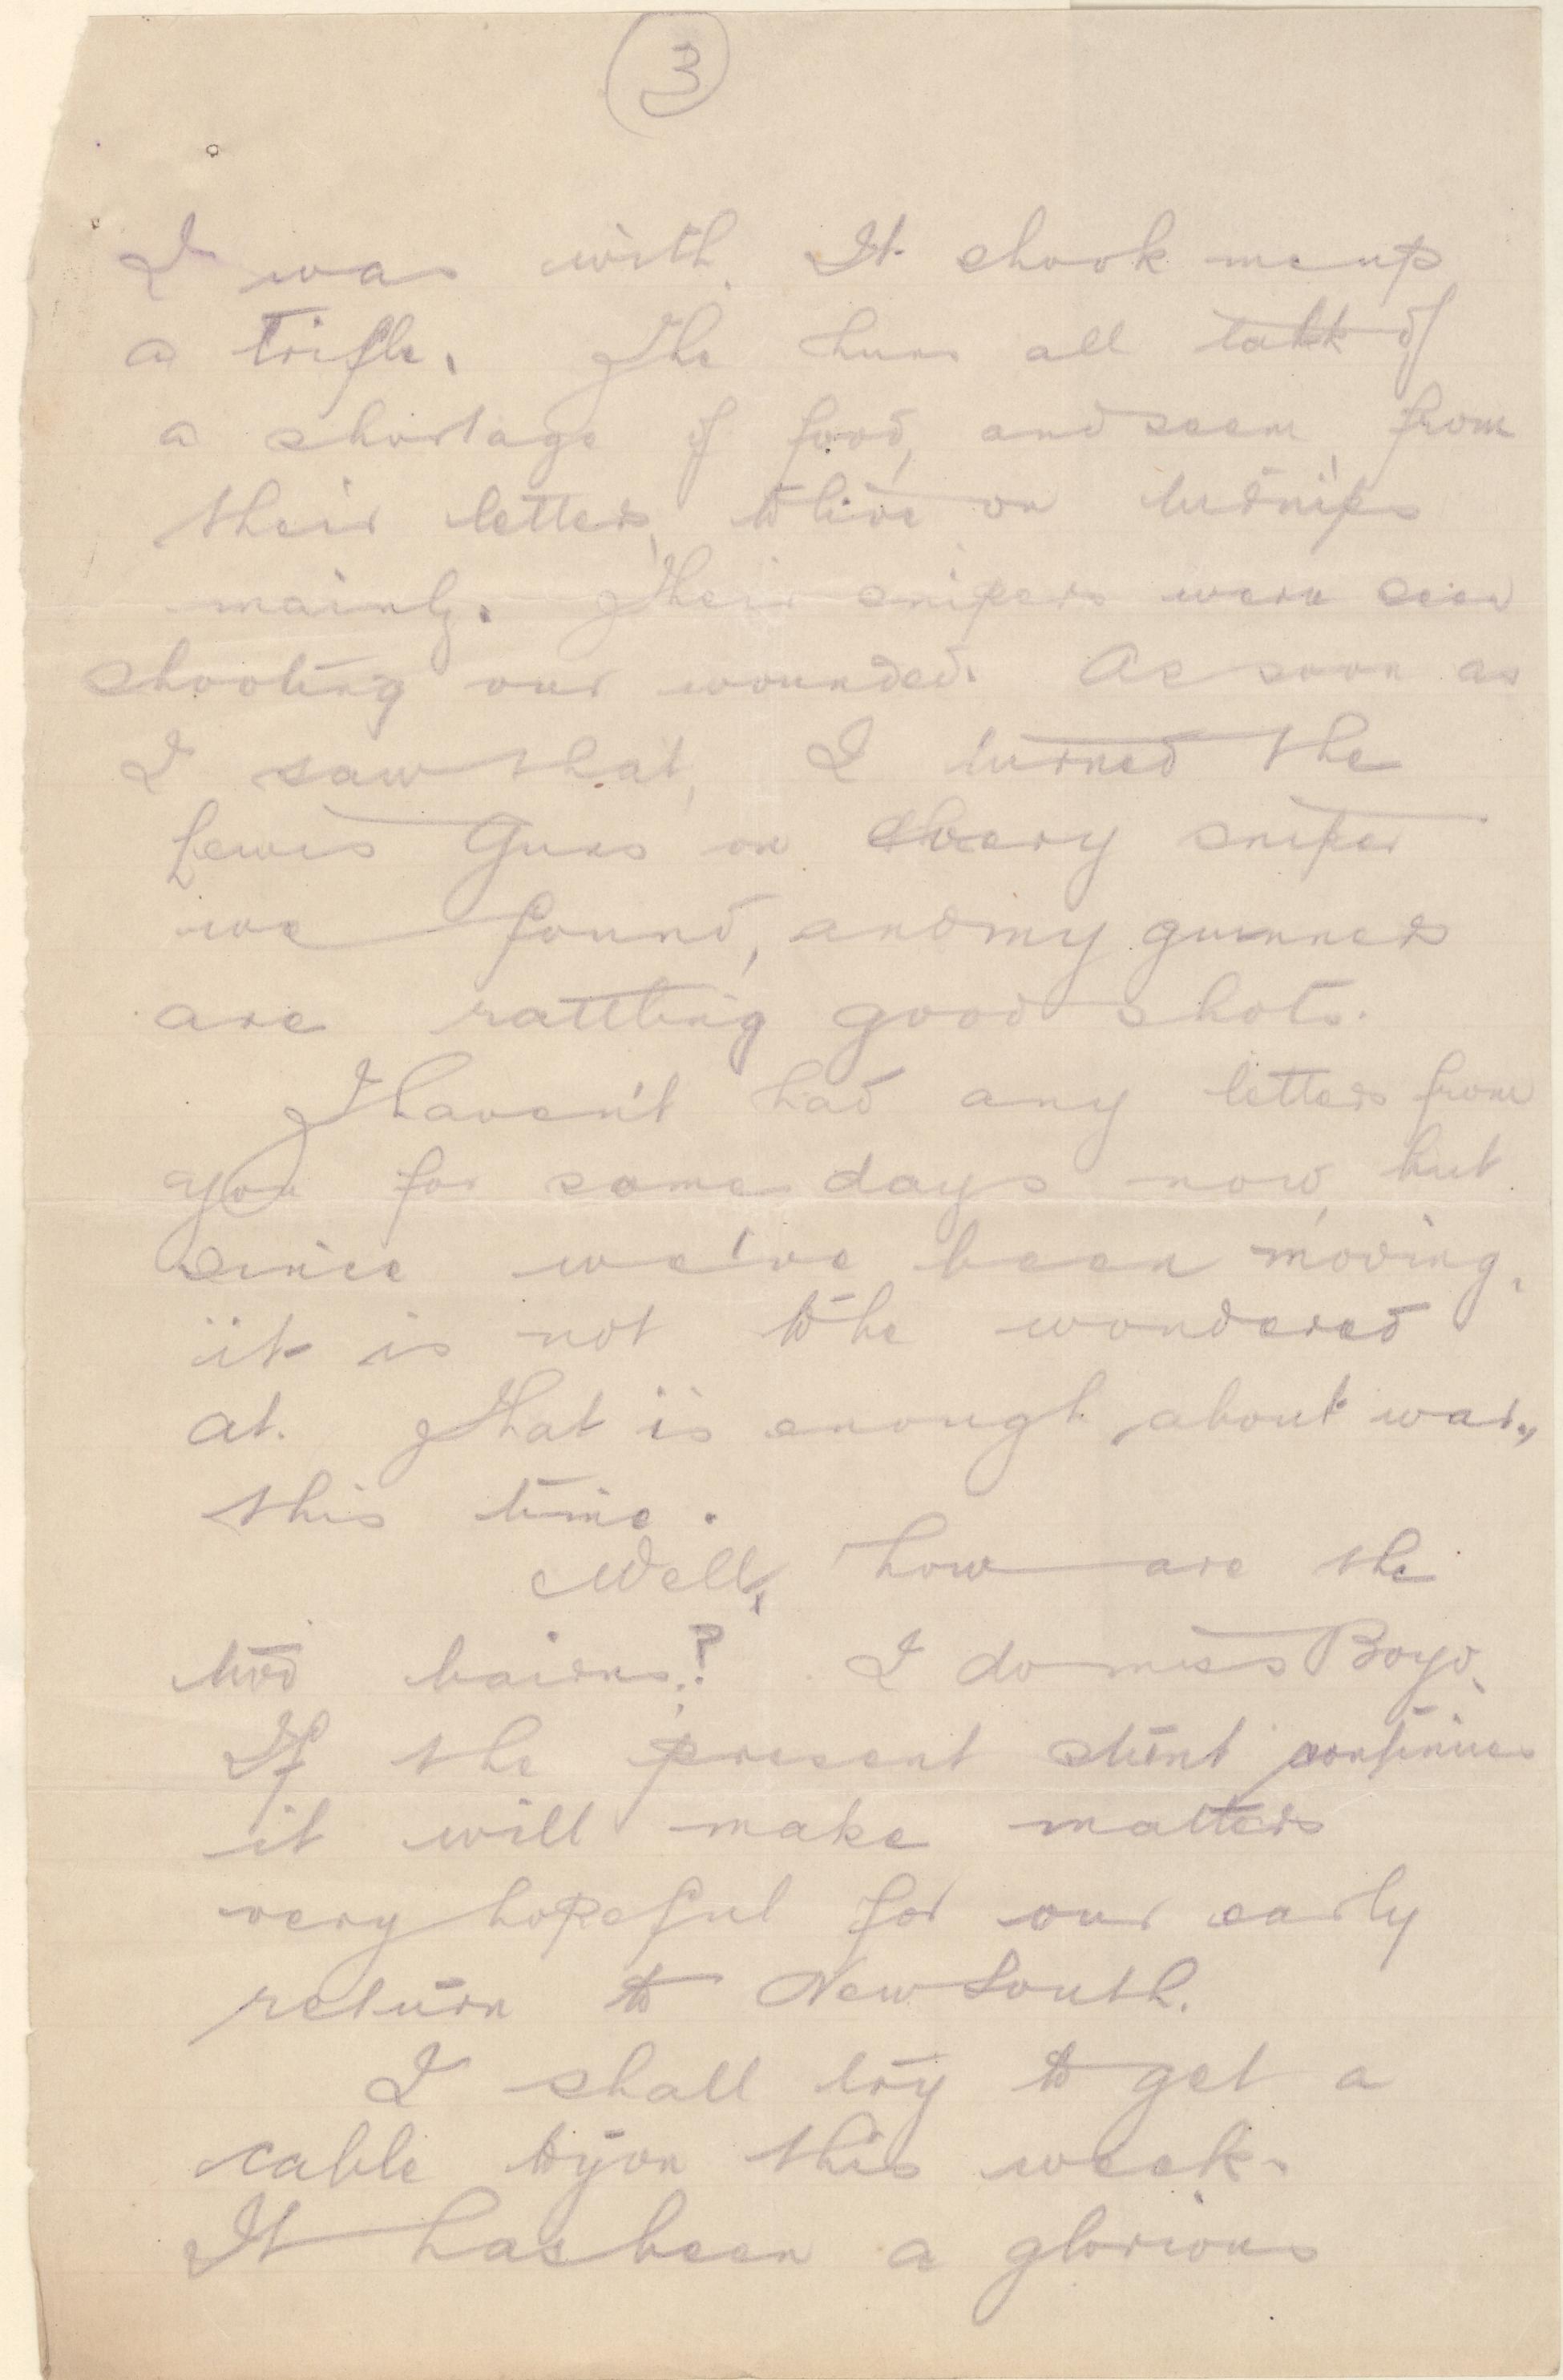 3
I was with. It shook me up
a trifle. The huns all talk of
a shortage of food, and seem, from
their letters, to live on turnips
mainly. Their snipers were seen
shooting our wounded. As soon as
I saw that, I turned the
Lewis Guns on every sniper
we found, and my gunners
are rattling good shots.
I haven't had any letters from
you for some days now, but
since we've been moving,
it is not to be wondered
at. That is enough about war,
this time.
Well, how are the
two bairns? I do miss Boyd.
If the present stunt continues
it will make matters
very hopeful for our early
return to New South.
I shall try to get a
cable to you this week.
It has been a glorious